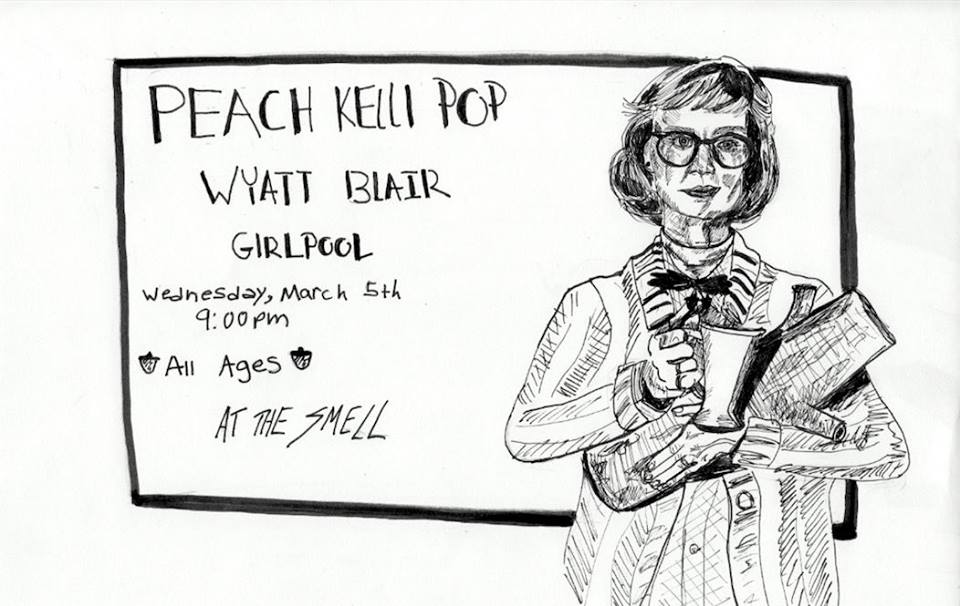 PEACH KELLI POP
WYATT BLAIR
GIRLPOOL
Wednesday, March 5th
9:00pm
All Ages
AT THE SMELL